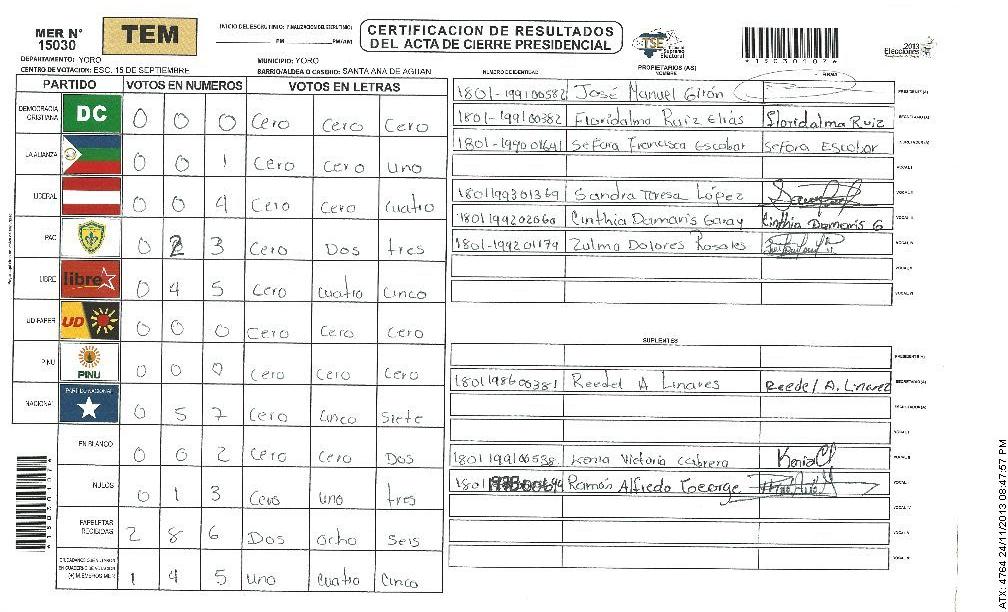 MER N° 15030
TEM
INICIO DEL ESCRUTINIO: FINALIZACION DEL ESCRUTINIO:
PM PM(AM)
CERTIFICACION DE RESULTADOS
DEL ACTA DE CIERRE PRESIDENCIAL
TSE Tribunal Supremo Electoral
*15030107*
2013
Elecciones
DEPARTAMENTO: YORO
MUNICIPIO: YORO
CENTRO DE VOTACION: ESC. 15 DE SEPTIEMBRE
BARRIO/ALDEA O CASERIO: SANTA ANA DE AGUAN
PARTIDO VOTOS EN NUMEROS VOTOS EN LETRAS
DEMOCRACIA CRISTIANA DC 0 0 0 Cero Cero Cero
LA ALIANZA 0 0 1 Cero Cero uno
LIBERAL 0 0 4 Cero Cero cuatro
PAC 0 2 3 Cero Dos tres
LIBRE libre 0 4 5 Cero cuatro cinco
UD-FAPER UD 0 0 0 Cero Cero Cero
PINU PINU 0 0 0 Cero Cero Cero
NACIONAL PARTIDO NACIONAL 0 5 7 Cero cinco siete
EN BLANCO 0 0 2 Cero Cero Dos
NULOS 0 1 3 Cero uno tres
PAPELETAS RECIBIDAS 2 8 6 Dos ocho seis
1 4 5 uno cuatro cinco
PROPIETARIOS (AS)
NUMERO DE IDENTIDAD NOMBRE FIRMA
1801-199100582 José Manuel Girón PRESIDENTE(A)
1801-199100382 Floridalma Ruiz Elias Floridalma Ruiz SECRETARIO(A)
1801-199001641 Sefora Francisca Escobar Sefora Escobar ESCRUTADOR(A)
VOCAL I
1801199301369 Sandra Teresa López VOCAL II
1801199202060 Cinthia Damaris Garay Cinthia Damaris G VOCAL III
1801-199201179 Zulma Dolores Rosales VOCAL IV
VOCAL V
VOCAL VI
SUPLENTES
PRESIDENTE(A)
1801198600381 Reedel A Linares Reedel A. Linarez SECRETARIO(A)
ESCRUTADOR(A)
VOCAL I
1801199100538 Kenia Victoria Cabrera Kenia VOCAL II
Ramón Alfredo George VOCAL
VOCAL IV
VOCAL V
VOCAL VI
*15030107*
ATX: 4764 24/11/2013 08:47:57 PM